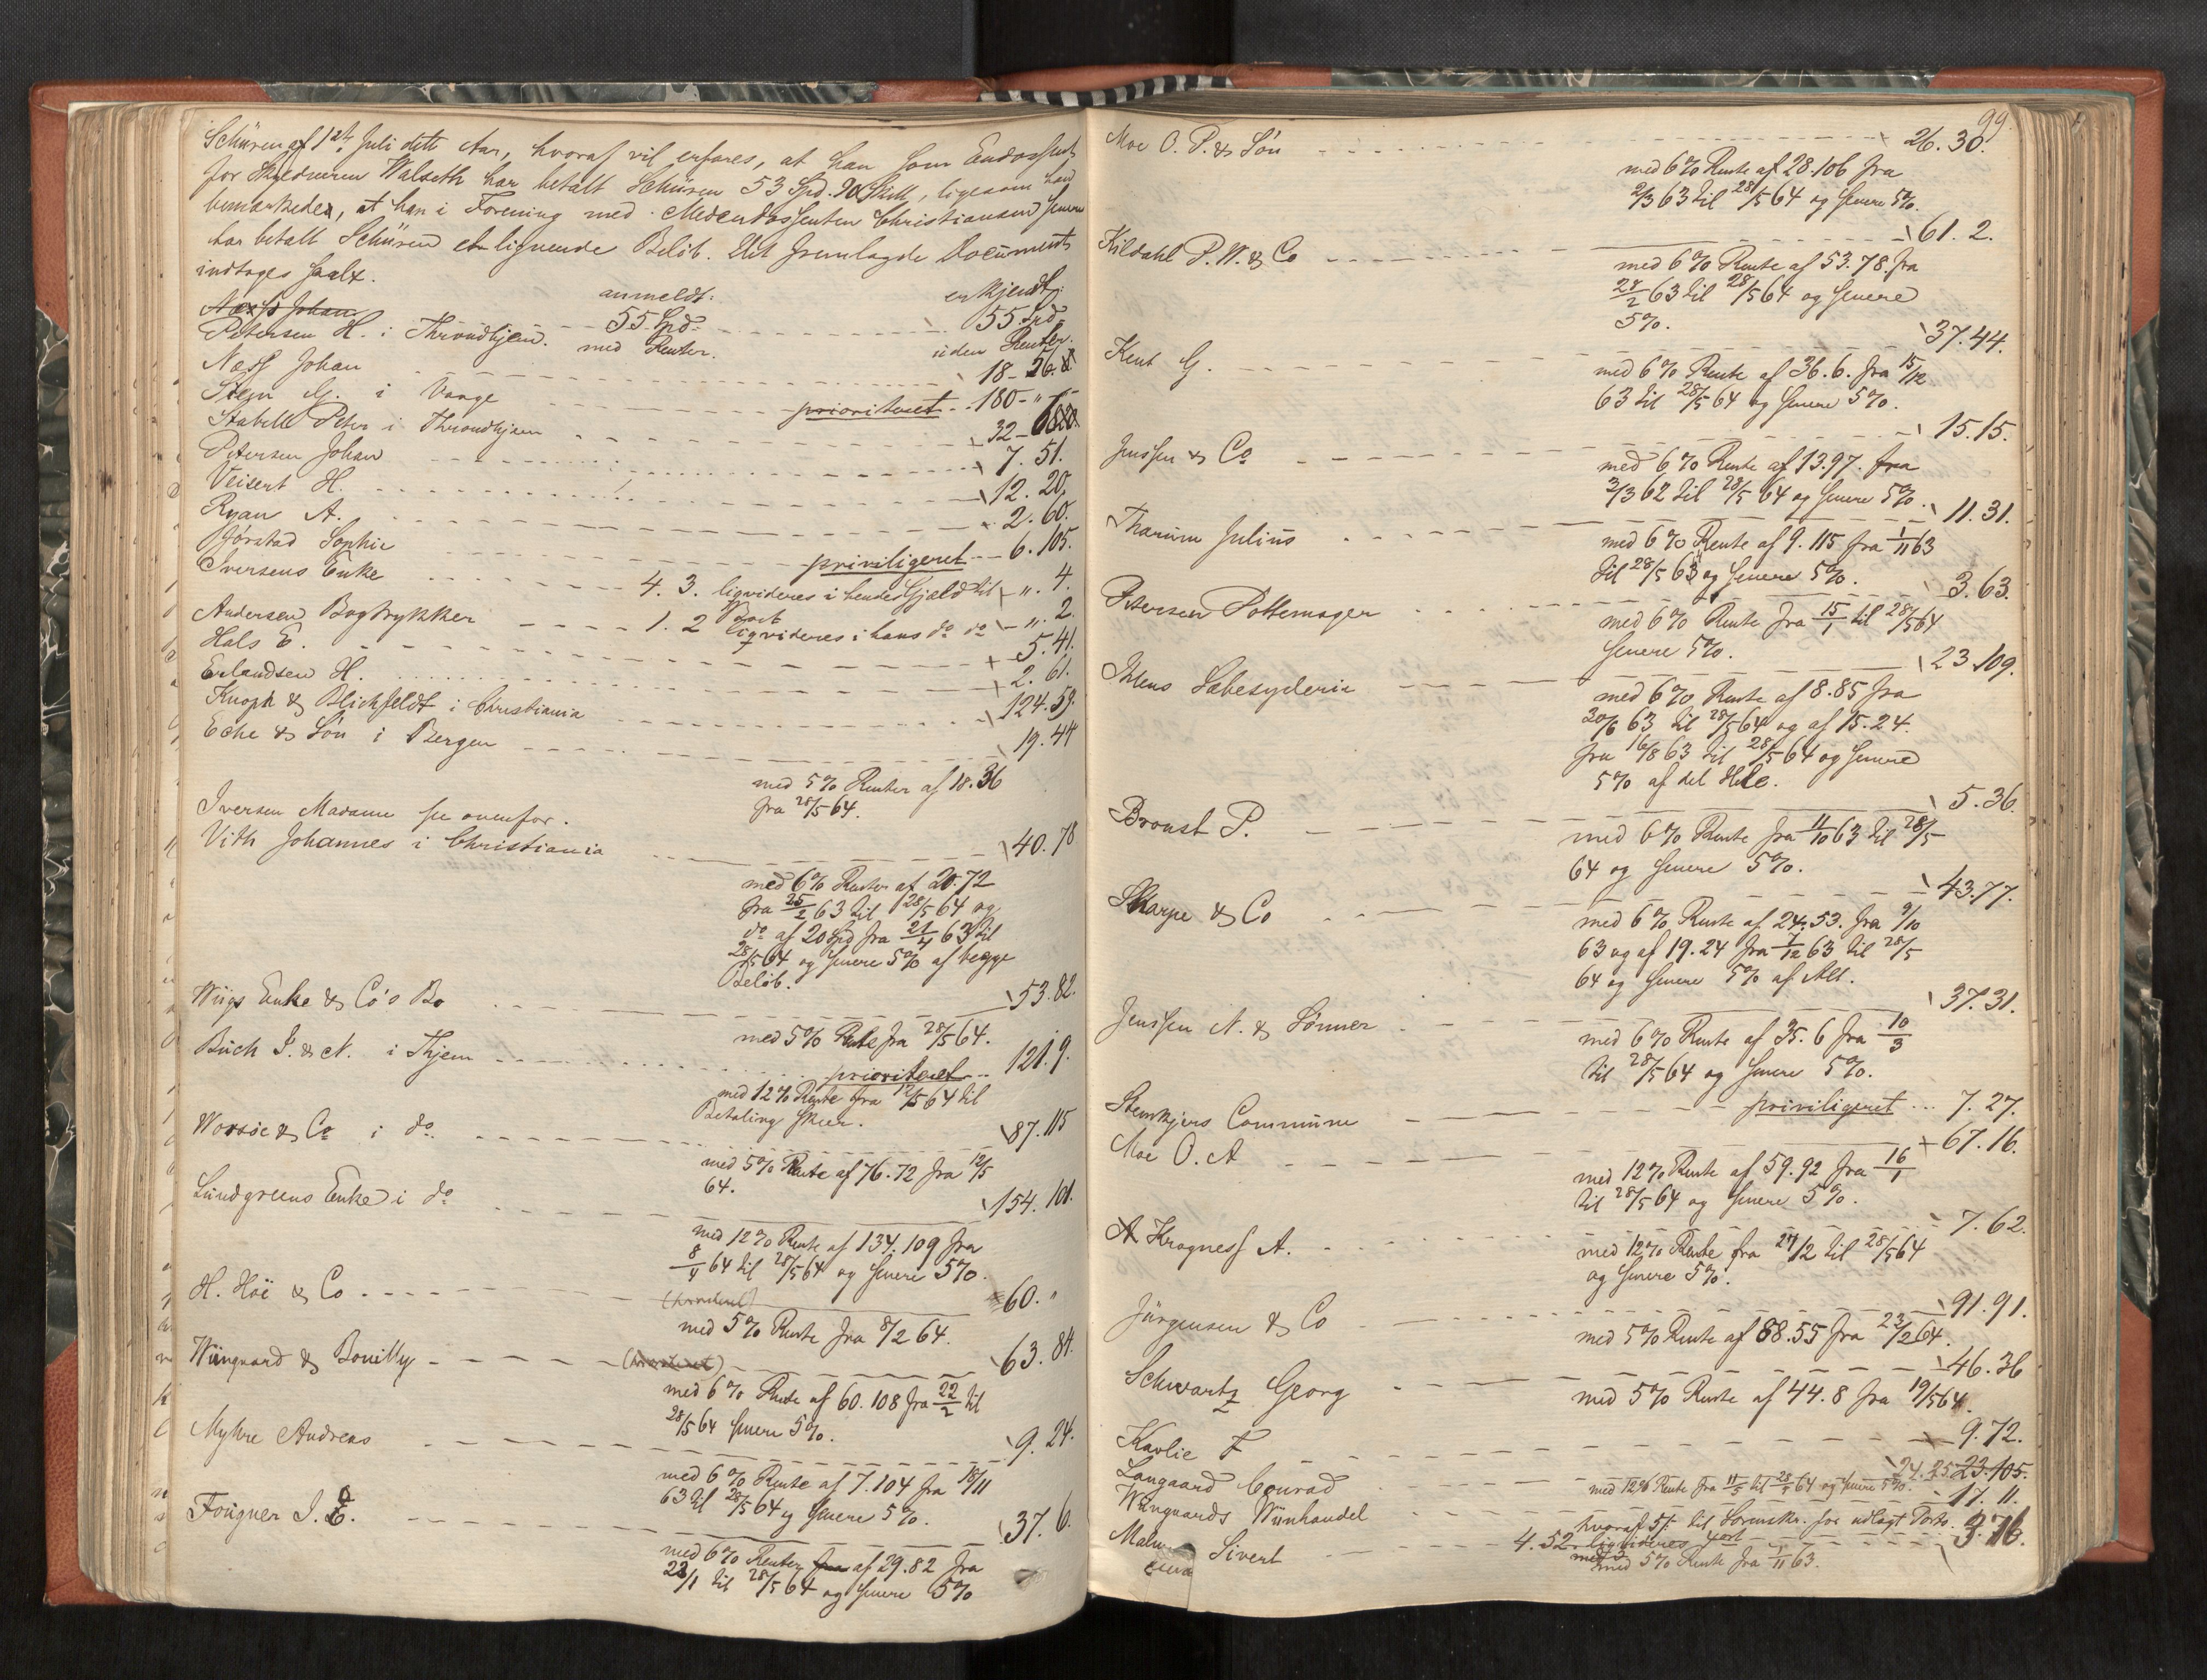 Schüren af 1st Juli dette Aar, hvoraf vil erfares, at han som Endossent
for Skredderen Walseth har betalt Schüren 53 Spd. 90 Skill, ligesom han
bemærkede, at han i Forening med Medendossenten Christiansen senere
har betalt Schüren et lignende Beløb. Det fremlagde Document
indtages saal.
anmeldt: erkjendt:
Næss Johan
Petersen H. i Throndhjem. 55 Spd. 55 Spd.
med Renter. uden Renter.
Næss Johan 18-56.
Stejn G. i Vange prioriteret 180-"-
Stabell Peter i Throndhjem 32-
Petersen Johan 7. 51.
Veisert H. 12. 20.
Ryan A. 2. 60.
Hørstad Sophie priviligeret 6. 105.
Iversens Enke 4. 3. liqvideres i hendes Gjeld til ". 4.
Boet
Andersen Bogtrykker 1. 2 liqvideres i hans do do ". 2.
Hals E. 5. 41.
Erlandsen H. 2. 61.
Knoph & Blichfeldt i Christiania 124. 59.
Eche & Søn i Bergen 19. 44
med 5% Renter af 18. 36
fra 28/5 64.
Iversen Madame se ovenfor.
Vith Johannes i Christiania 40. 78
med 6% Renter af 20. 72
fra 25/2 63 til 28/5 64 og
do af 20 Spd fra 21/4 63 til
28/5 64 og senere 5% af begge
Beløb.
Wiigs Enke & Co's Bo 53. 82.
med 5% Rente fra 28/5 64.
Buch I. & N. i Thjem prioriteret 121. 9.
med 12% Rente fra 12/5 64 til
Betaling skeer.
Worsøe & Co i do 87. 115
med 5% Rente af 76. 72 fra 12/5
64.
Lundgreens Enke i do 154. 101.
med 12% Rente af 134. 109 fra
8/4 64 til 28/5 64 og senere 5%.
H. Höe & Co 60. "
med 5% Rente fra 8/2 64.
Wiingaard & Bouilly 63. 84.
med 6% Rente af 60. 108 fra 22/2 til
28/5 64 senere 5%.
Myhre Andreas 9. 24.
med 6% Rente af 7. 104 fra 18/11
63 til 28/5 64 og senere 5%.
Fougner I. E. 37. 6.
med 6% Renter fra af 29. 82 fra
23/1 til 28/5 64 og senere 5%
99.
Moe O. P. & Søn 26. 30.
med 6% Rente af 28. 106 fra
2/3 63 til 28/5 64 og senere 5%.
Kildahl P. W. & Co 61. 2.
med 6% Rente af 53. 78. fra
28/2 63 til 28/5 64 og senere
5%.
Kent G. 37. 44.
med 6% Rente af 36. 6. fra 15/12
63 til 28/5 64 og senere 5%.
Jenssen & Co 15. 15.
med 6% Rente af 13. 97. fra
2/3 62 til 28/5 64 og senere 5%.
Tharum Julius 11. 31.
med 6% Rente af 9. 115 fra 1/11 63
til 28/5 63 og senere 5%.
Petersen Pottemager 3. 63.
med 6% Rente fra 15/1 til 28/5 64
senere 5%.
Ihlens Sæbesyderie 23. 109.
med 6% Rente af 8. 85 fra
20/6 63 til 28/5 64 og af 15. 24.
fra 16/8 63 til 28/5 64 og senere
5% af det Hele.
Broust P. 5. 36.
med 6% Rente fra 11/10 63 til 28/5
64 og senere 5%.
Skarpe & Co 43. 77.
med 6% Rente af 24. 53. fra 9/10
63 og af 19. 24 fra 7/12 63 til 28/5
64 og senere 5% af Alt.
Jenssen N. & Sønner 37. 31.
med 6% Rente af 35. 6 fra 10/3
til 28/5 64 og senere 5%.
Stenkjers Commune priviligeret 7. 27.
Moe O. A 67. 16.
med 12% Rente af 59. 92 fra 16/1
til 28/5 64 og senere 5%.
Kragness A. 7. 62.
med 12% Rente fra 24/12 til 28/5 64
og senere 5%.
Jürgensen & Co 91. 91.
med 5% Rente af 88. 55 fra 23/2 64.
Schwartz Georg 46. 36
med 5% Rente af 44. 8 fra 19/5 64.
Kavlie F 9. 72.
Langaard Conrad 24. 25. 23. 105.
med 12% Rente fra 11/5 til 28/5 64 og senere 5%.
Wiingaards Wiinhandel 17. 11.
hvoraf 5 til Sorenskr. for udlagt Porto.
Malm Sivert 4. 52. liqvideres 3. 76.
med 5% Rente fra 1/11 63.